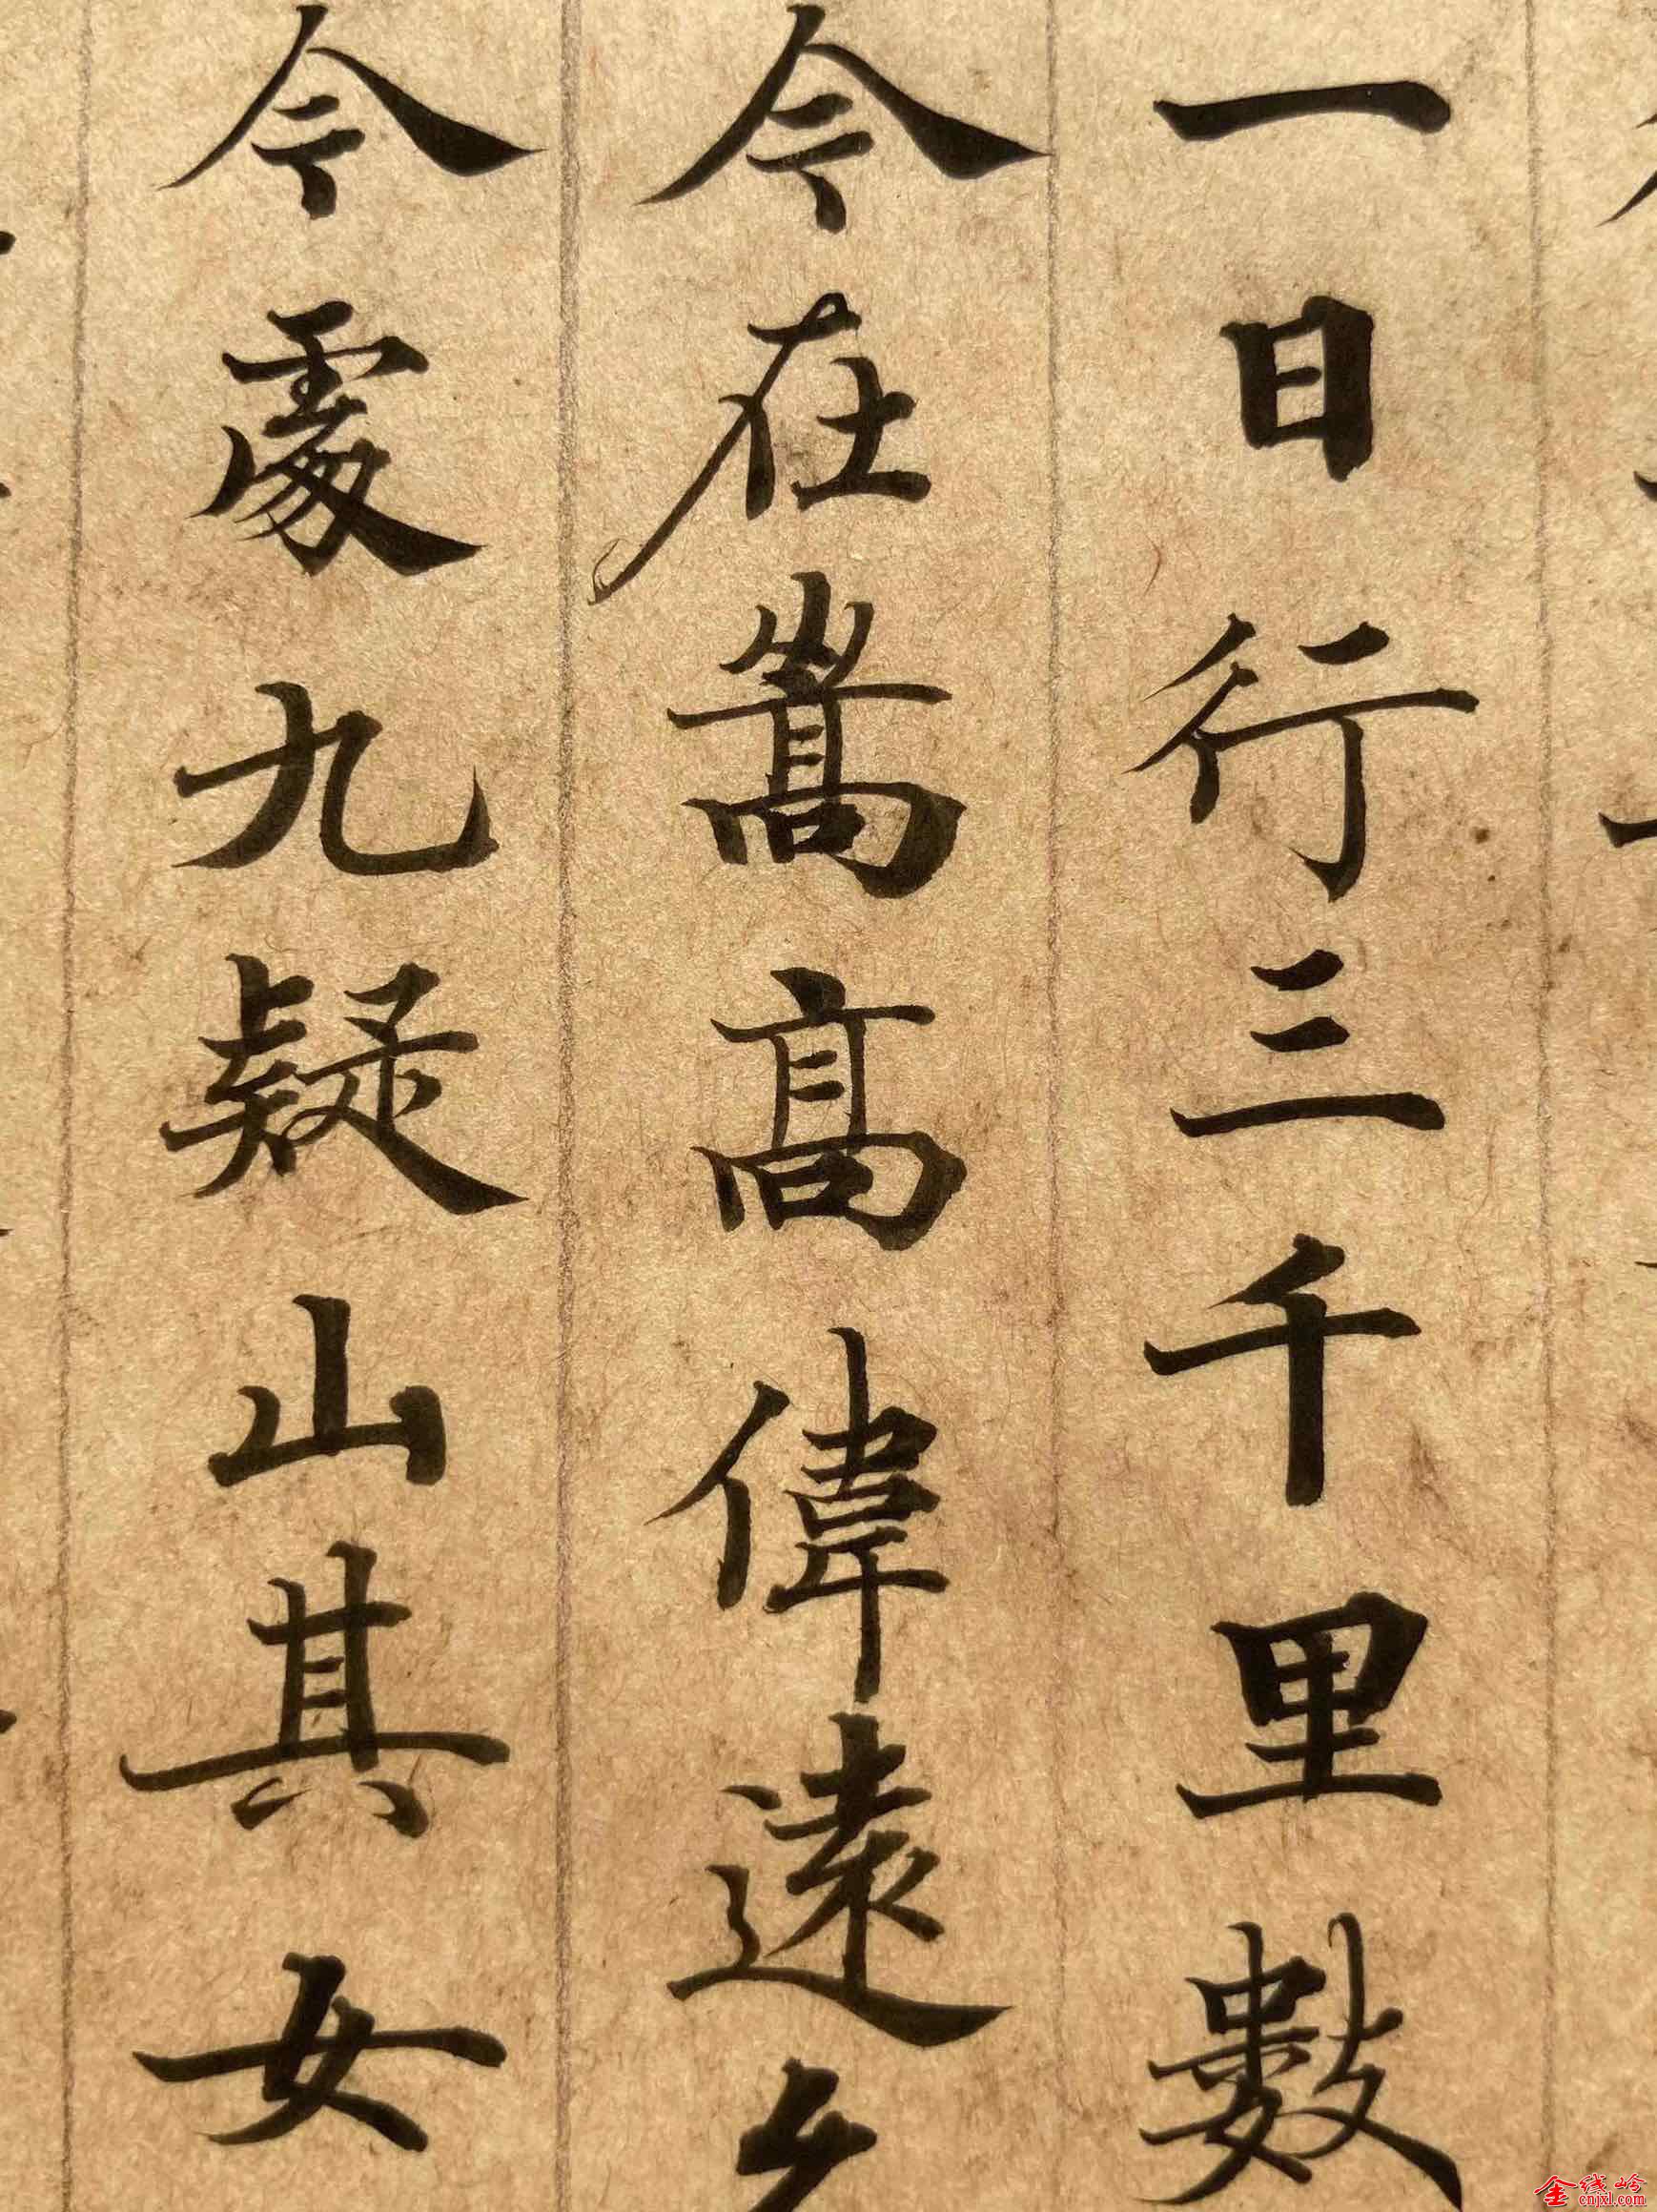 一日行三千里數
今在嵩高偉遠
今處九疑山其女
金线岭
cnjxl.com